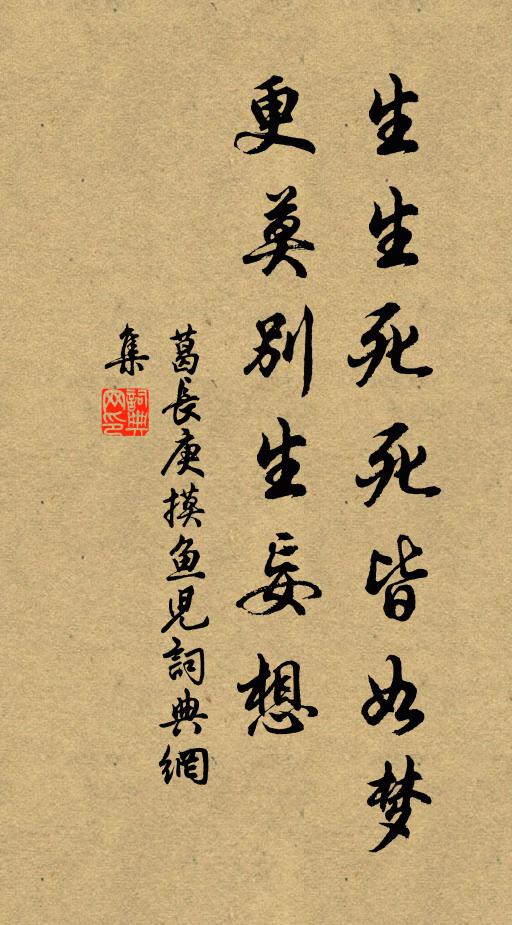 生生死死皆如梦
更莫别生妄想
葛長庚摸魚児詞典網
集
詞典網印